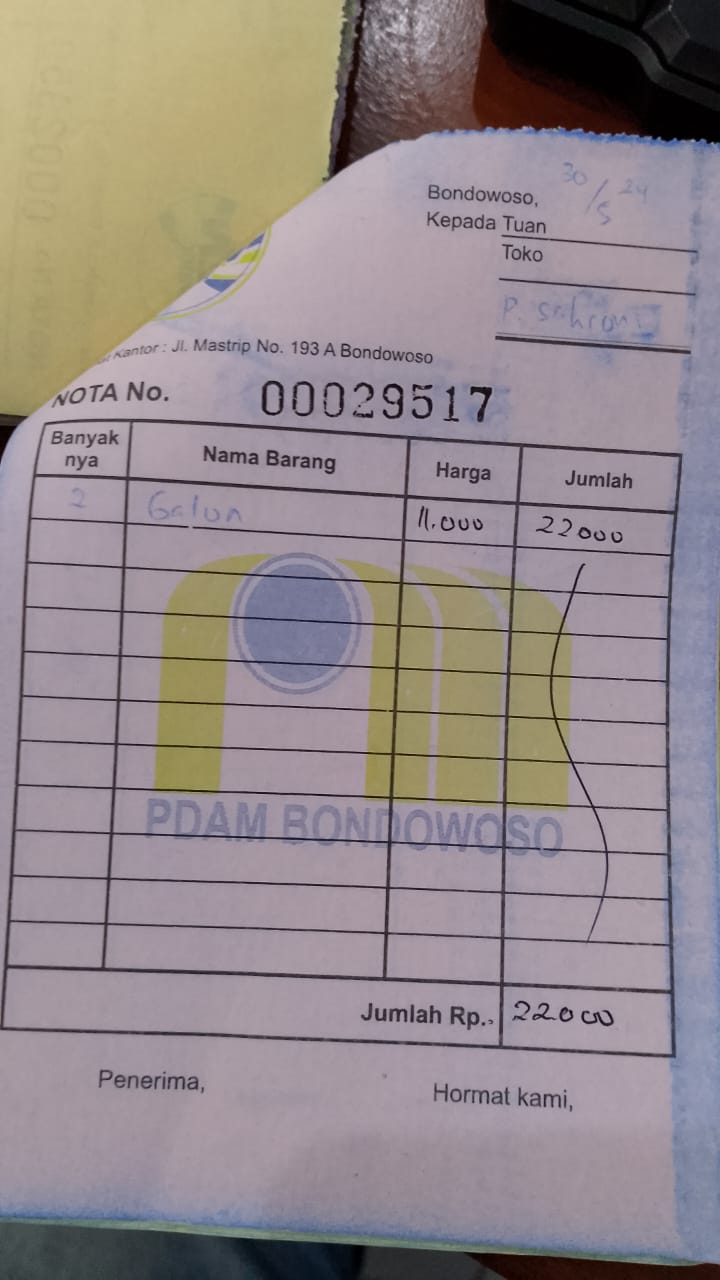 Bondowoso, 30/5 24
Kepada Tuan
Toko
P. Sahroni
Kantor : Jl. Mastrip No. 193 A Bondowoso
NOTA No. 00029517
Banyak nya Nama Barang Harga Jumlah
2 Galon 11.000 22000
PDAM BONDOWOSO
Jumlah Rp.. 22000
Penerima, Hormat kami,